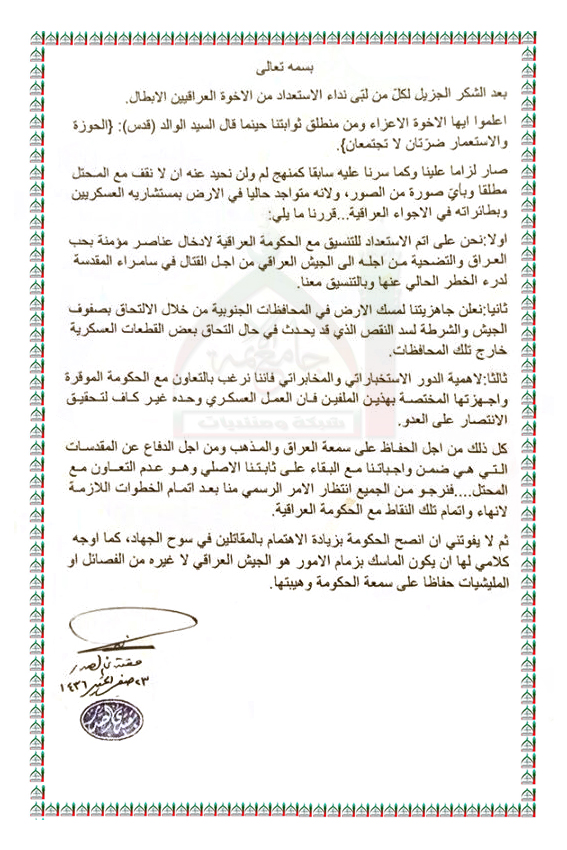 بسمه تعالى
بعد الشكر الجزيل لكلّ من لبّى نداء الاستعداد من الاخوة العراقيين الابطال.
اعلموا ايها الاخوة الاعزاء ومن منطلق ثوابتنا حينما قال السيد الوالد (قدس): {الحوزة
والاستعمار ضرّتان لا تجتمعان}.
صار لزاما علينا وكما سرنا عليه سابقا كمنهج لم ولن نحيد عنه ان لا نقف مع المحتل
مطلقا وبأيّ صورة من الصور، ولانه متواجد حاليا في الارض بمستشاريه العسكريين
وبطائراته في الاجواء العراقية...قررنا ما يلي:
اولا:نحن على اتم الاستعداد للتنسيق مع الحكومة العراقية لادخال عناصر مؤمنة بحب
العراق والتضحية من اجله الى الجيش العراقي من اجل القتال في سامراء المقدسة
لدرء الخطر الحالي عنها وبالتنسيق معنا.
ثانيا:نعلن جاهزيتنا لمسك الارض في المحافظات الجنوبية من خلال الالتحاق بصفوف
الجيش والشرطة لسد النقص الذي قد يحدث في حال التحاق بعض القطعات العسكرية
خارج تلك المحافظات.
ثالثا:لاهمية الدور الاستخباراتي والمخابراتي فاننا نرغب بالتعاون مع الحكومة الموقرة
واجهزتها المختصة بهذين الملفين فان العمل العسكري وحده غير كاف لتحقيق
الانتصار على العدو.
كل ذلك من اجل الحفاظ على سمعة العراق والمذهب ومن اجل الدفاع عن المقدسات
التي هي ضمن واجباتنا مع البقاء على ثابتنا الاصلي وهو عدم التعاون مع
المحتل....فنرجو من الجميع انتظار الامر الرسمي منا بعد اتمام الخطوات اللازمة
لانهاء واتمام تلك النقاط مع الحكومة العراقية.
ثم لا يفوتني ان انصح الحكومة بزيادة الاهتمام بالمقاتلين في سوح الجهاد، كما اوجه
كلامي لها ان يكون الماسك بزمام الامور هو الجيش العراقي لا غيره من الفصائل او
المليشيات حفاظا على سمعة الحكومة وهيبتها.
مقتدى الصدر
٢٣ صفر الخير ١٤٣٦
جامع ائمة
شبكة ومنتديات